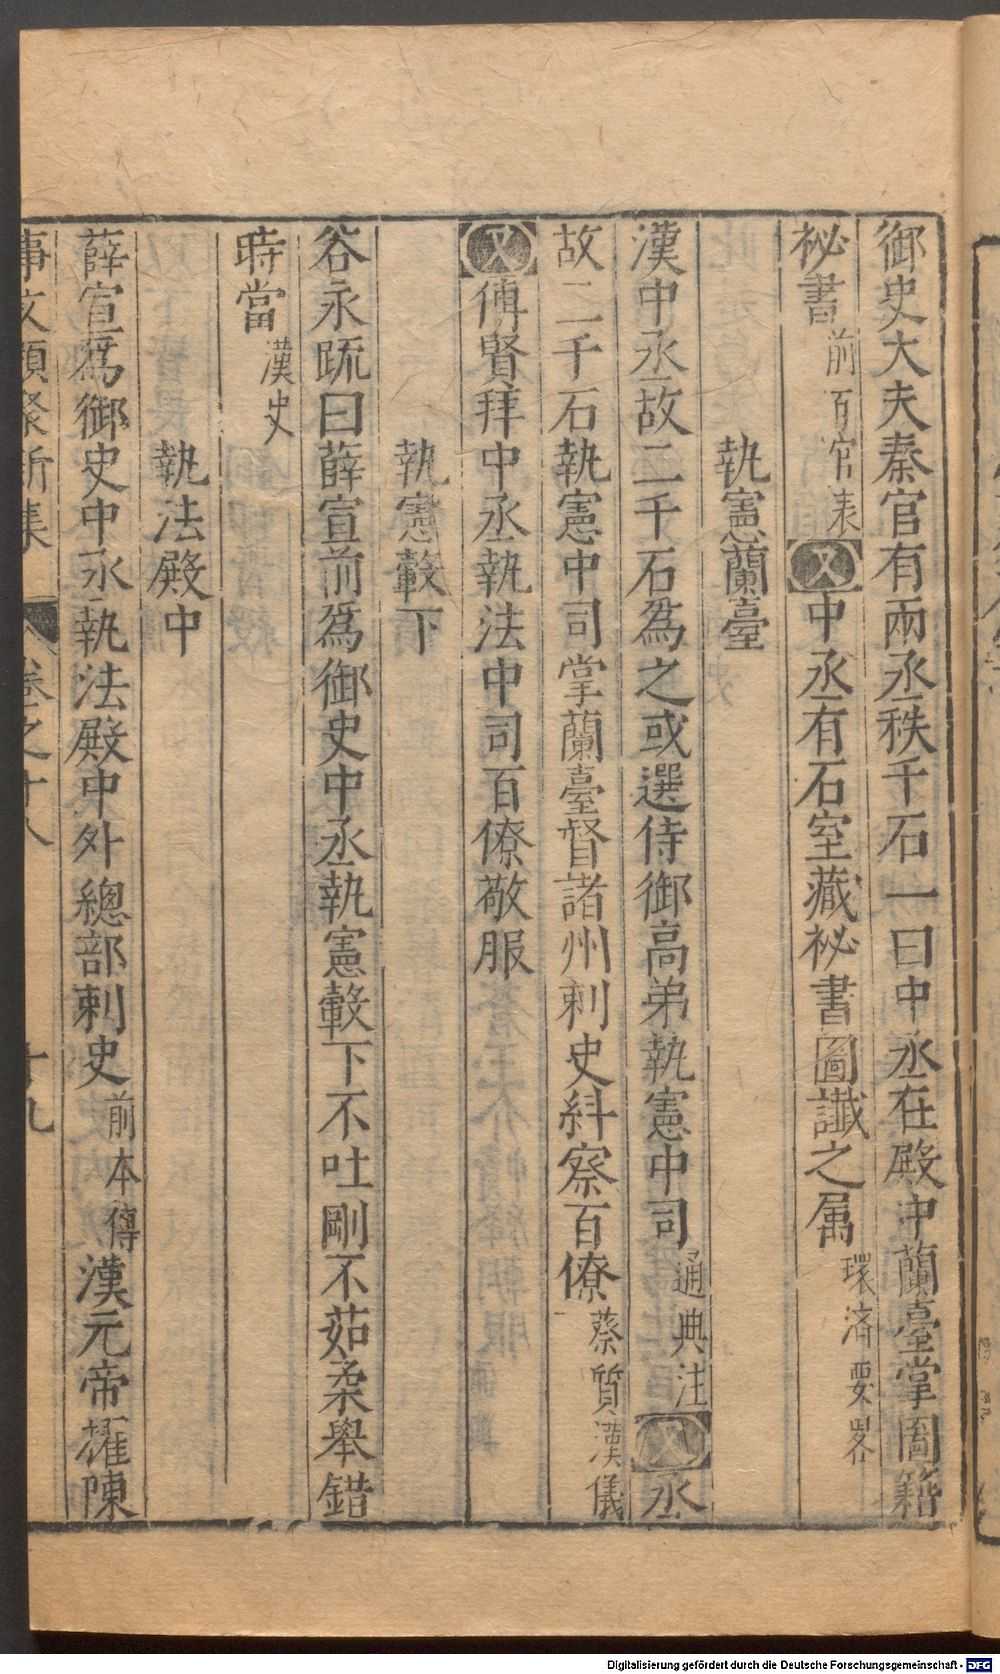 御史大夫秦官有兩丞秩千石一曰中丞在殿中蘭臺掌圖籍
祕書前百官表又中丞有石室藏祕書圖讖之属環済要畧
執憲蘭臺
漢中丞故二千石爲之或選侍御高弟執憲中司通典注又丞
故二千石執憲中司掌蘭臺督諸州刺史糾察百僚蔡質漢儀
又傅賢拜中丞執法中司百僚敬服
執憲轂下
谷永䟽曰薛宣前爲御史中丞執憲轂下不吐剛不茹柔舉錯
時當漢史
執法殿中
薛宣爲御史中丞執法殿中外總部刺史前本傳漢元帝擢陳
事文類聚新集 卷之十八 十九
Digitalisierung gefördert durch die Deutsche Forschungsgemeinschaft - DFG